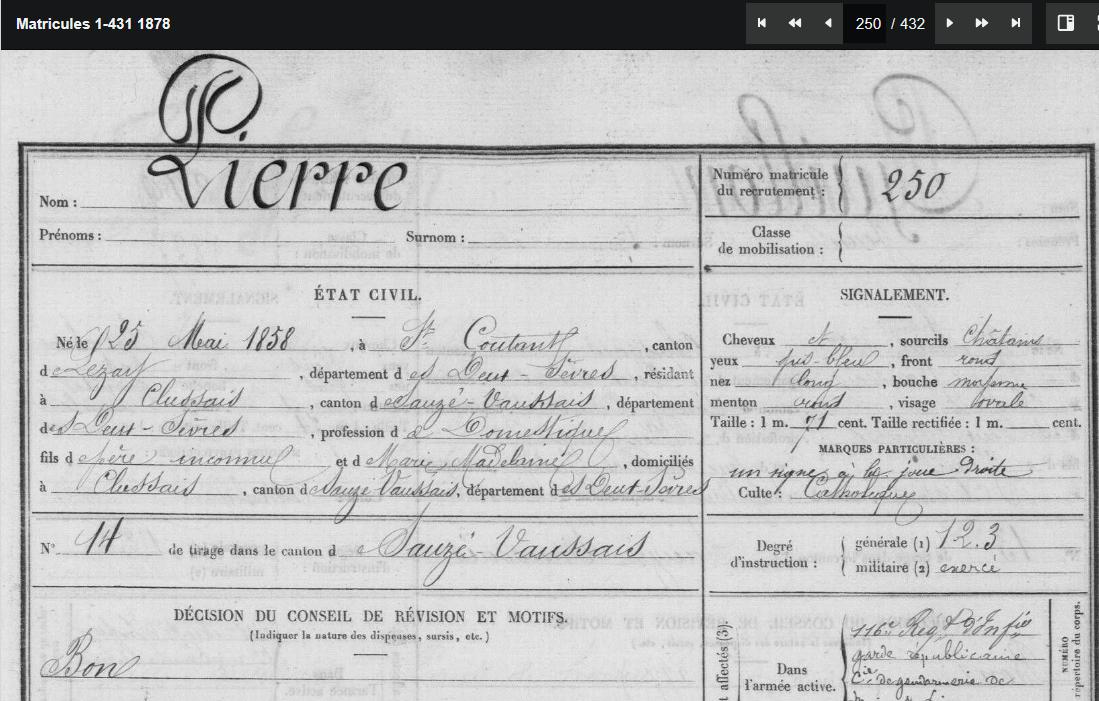 Matricules 1-431 1878
250 / 432
Nom : Pierre
Prénoms : Surnom :
Numéro matricule
du recrutement : 250
Classe
de mobilisation :
ÉTAT CIVIL.
Né le 25 Mai 1858, à St Coutant, canton
de Lezay, département des Deux-Sèvres, résidant
à Clussais, canton de Sauzé-Vaussais, département
des Deux-Sèvres, profession de Domestique
fils de père inconnu et de Marie Madelaine, domiciliés
à Clussais, canton de Sauzé Vaussais, département des Deux-Sèvres
N° 14 de tirage dans le canton de Sauzé-Vaussais
DÉCISION DU CONSEIL DE RÉVISION ET MOTIFS.
(Indiquer la nature des dispenses, sursis, etc.)
Bon
SIGNALEMENT.
Cheveux et, sourcils Châtains
yeux gris-bleu, front rond
nez long, bouche moyenne
menton rond, visage ovale
Taille : 1 m. 71 cent. Taille rectifiée : 1 m. cent.
MARQUES PARTICULIÈRES :
un signe à la joue droite
Culte : Catholique
Degré
d'instruction :
générale (1) 1.2.3
militaire (2) exercé
affectés (3)
Dans
l'armée active.
116e Régt d'Infie
garde républicaine
Cie de gendarmerie de
NUMÉRO
répertoire du corps.